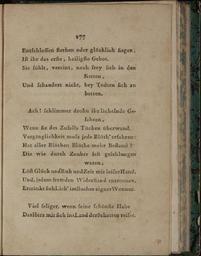 177
Entschlossen sterben oder glücklich sagen,
Ist ihr das erste, heiligste Gebot.
Sie fühlt, vereint, noch frey sich in den
Ketten,
Und schaudert nicht, bey Todten sich zu
betten.
Ach! schlimmer drohn ihr lächelnde Ge-
fahren,
Wenn sie des Zufalls Tücken überwand.
Vergänglichkeit muß jede Blüth' erfahren:
Hat aller Blüthen Blüthe mehr Bestand?
Die wie durch Zauber fest geschlungen
waren,
Löst Glück und Ruh und Zeit mit leiser Hand.
Und, jedem fremden Widerstand entronnen,
Ertränkt sich Lieb' in Bechern eigner Wonnen.
Viel seliger, wenn seine schönste Habe
Das Herz mit sich ins Land der Schatten reißt.